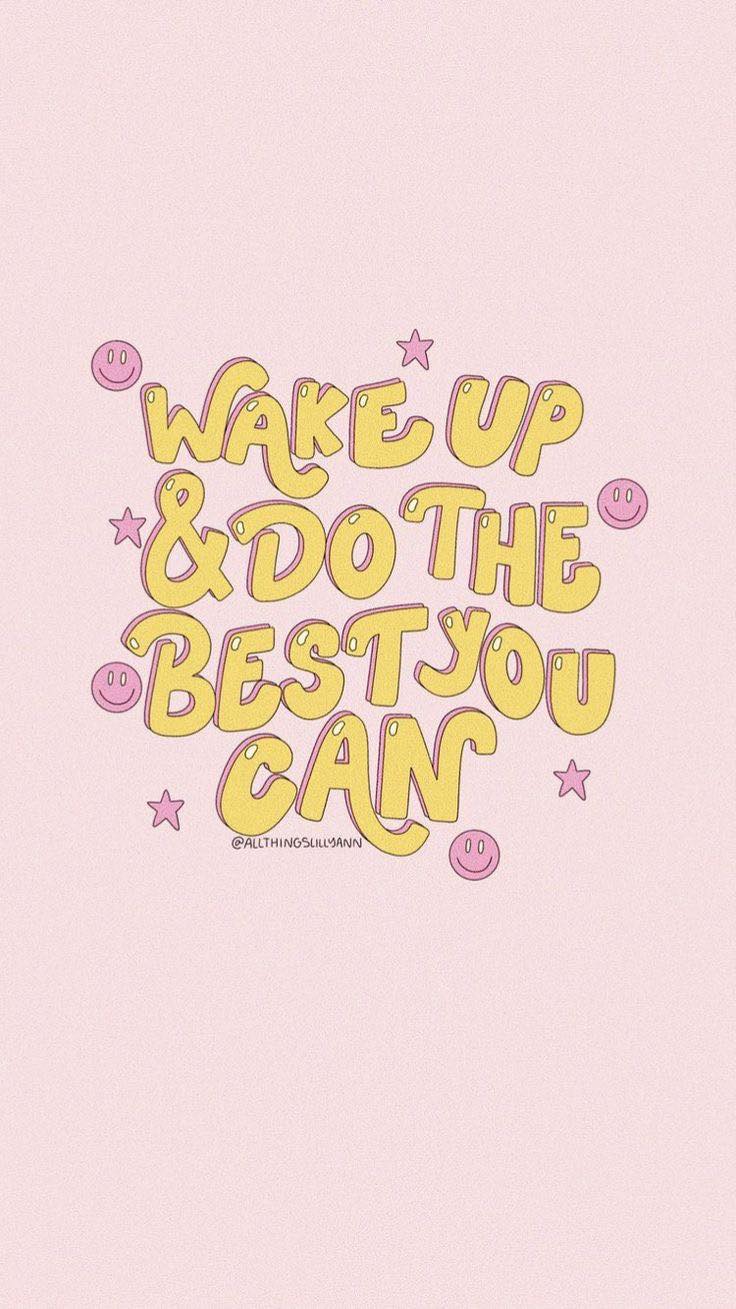 WAKE UP
& DO THE
BEST YOU
CAN
@ALLTHINGSLILLYANN